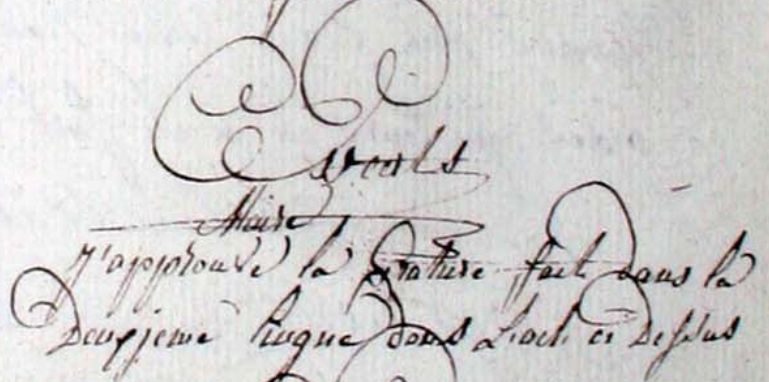 Maire
J'approuve la Grature fait dans la
Deuxjeme lingne dans L'acte ci Dessus